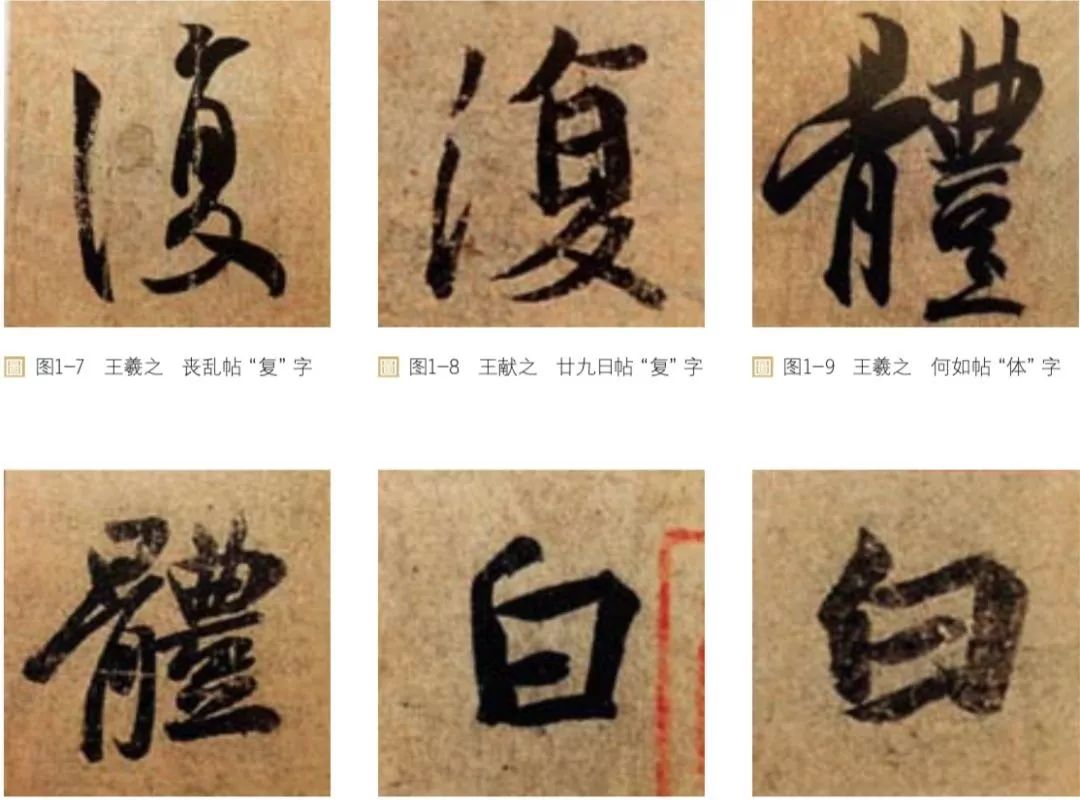 復 復 體
圖 图1-7 王羲之 丧乱帖“复”字
圖 图1-8 王献之 廿九日帖“复”字
圖 图1-9 王羲之 何如帖“体”字
體 白 白